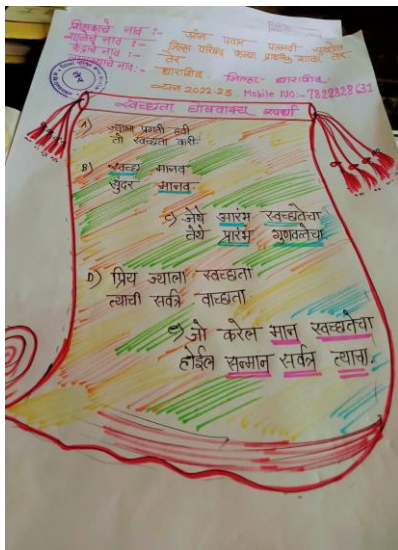 शिक्षकाचे नाव :- पवार पल्लवी
शाळेचे नाव :- जिल्हा परिषद कन्या प्राथमिक शाळा तेर.
केंद्राचे नाव :- तेर
नाव:- धाराशिव. जिल्हा:- धाराशिव.
सन 2022-23. Mobile No:- 7822828631
स्वच्छता घोषवाक्य स्पर्धा
A) ज्याला प्रगती हवी
तो स्वच्छता करी.
B) स्वच्छ मानव
सुंदर मानव
C) जेथे आरंभ स्वच्छतेचा
तेथे प्रारंभ गुणवत्तेचा
D) प्रिय ज्याला स्वच्छता
त्याची सर्वत्र वाच्छता
e) जो करेल मान स्वच्छतेचा
होईल सन्मान सर्वत्र त्याचा.